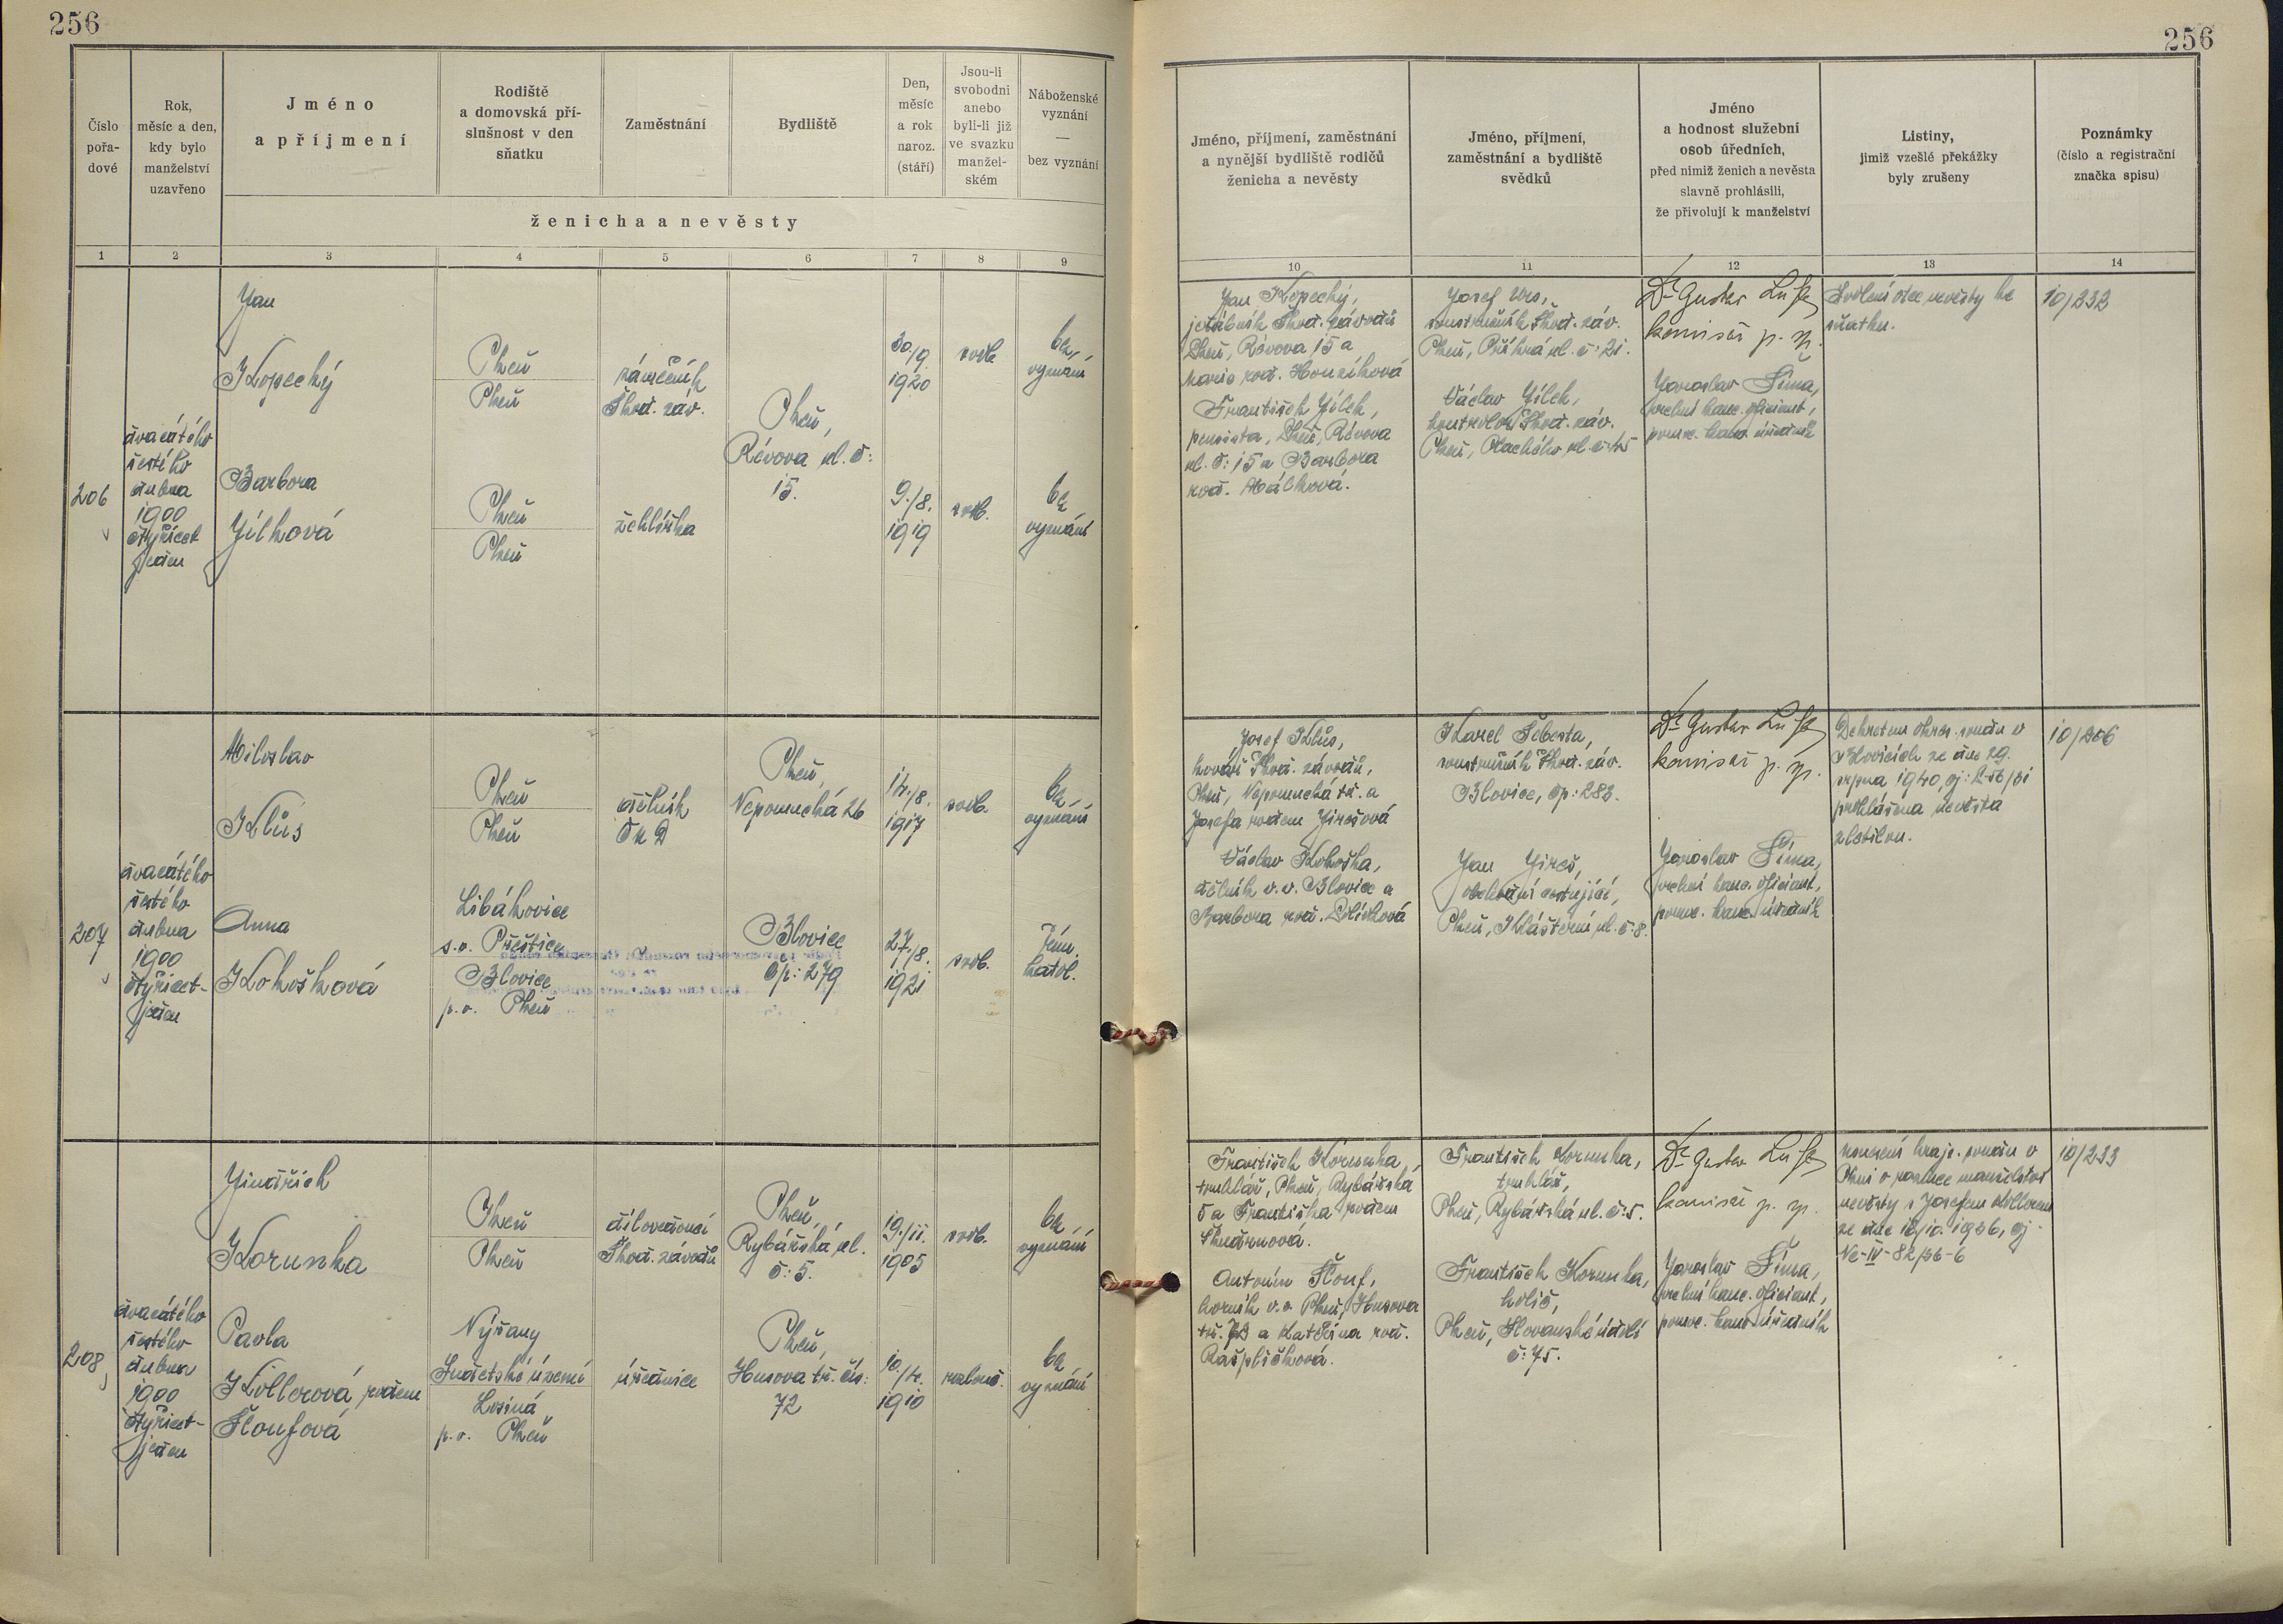 256
256
Číslo
pořa-
dové
Rok,
měsíc a den,
kdy bylo
manželství
uzavřeno
Jméno
a příjmení
Rodiště
a domovská pří-
slušnost v den
sňatku
Zaměstnání
Bydliště
Den,
měsíc
a rok
naroz.
(stáří)
Jsou-li
svobodni
anebo
byli-li již
ve svazku
manžel-
ském
Náboženské
vyznání
—
bez vyznání
ženicha a nevěsty
1 2 3 4 5 6 7 8 9
Jméno, příjmení, zaměstnání
a nynější bydliště rodičů
ženicha a nevěsty
Jméno, příjmení,
zaměstnání a bydliště
svědků
Jméno
a hodnost služební
osob úředních,
před nimiž ženich a nevěsta
slavně prohlásili,
že přivolují k manželství
Listiny,
jimiž vzešlé překážky
byly zrušeny
Poznámky
(číslo a registrační
značka spisu)
10 11 12 13 14
206
dvacátého
šestého
dubna
1900
čtyřicet
jeden
Jan
Kopecký
Plzeň
Plzeň
zámečník
Škod. záv.
Plzeň,
Révova ul. č:
15.
30./9.
1920
svob.
bez
vyznání
Barbora
Jílková
Plzeň
Plzeň
žehlířka
9./8.
1919
svob.
bez
vyznání
Jan Kopecký,
jeřábník Škod. závodů
Plzeň, Révova 15 a
Marie rod. Houzíková
František Jílek,
pensista, Plzeň, Révova
ul. č: 15 a Barbora
rod. Málková.
Josef Urs,
soustružník Škod. záv.
Plzeň, Příkrá ul. č: 21.
Václav Jílek,
kontrolor Škod. záv.
Plzeň, Plachého ul. č: 45
Dr Gustav
komisař p. sp.
Jaroslav Šíma,
vrchní kanc. oficiant,
pomoc. kanc. úředník
Svolení otce nevěsty ke
sňatku.
10/232
207
dvacátého
šestého
dubna
1900
čtyřicet-
jeden
Miloslav
Klůs
Plzeň
Plzeň
dělník
ČMD
Plzeň,
Nepomucká 26
14./8.
1917
svob.
bez
vyznání
Anna
Kohošková
Libákovice
s.o. Přeštice
Blovice
p.o. Plzeň
Blovice
čp: 279
27./8.
1921
svob.
řím.
katol.
Josef Klůs,
kovář Škod. závodů,
Plzeň, Nepomucká tř. a
Josefa rodem Jirešová
Václav Kohoška,
dělník v.v. Blovice a
Barbora rod.
Karel Šebesta,
soustružník Škod. záv.
Blovice, čp: 283.
Jan Jireš,
obchodní cestující,
Plzeň, Klášterní ul. č: 8.
Dr Gustav
komisař p. sp.
Jaroslav Šíma,
vrchní kanc. oficiant,
pomoc. kanc. úředník
Dekretem okres. soudu v
Blovicích ze dne 29.
srpna 1940, čj:
prohlášena nevěsta
zletilou.
10/206
208
dvacátého
šestého
dubna
1900
čtyřicet-
jeden
Jindřich
Korunka
Plzeň
Plzeň
dílovedoucí
Škod. závodů
Plzeň,
Rybářská ul.
č: 5.
19./11.
1905
svob.
bez
vyznání
Pavla
Kollerová, rodem
Šloufová
Nýřany
Sudetské území
Losiná
p.o. Plzeň
úřednice
Plzeň,
Husova tř. čís:
72
10./4.
1910
rozlouč.
bez
vyznání
František Korunka,
truhlář, Plzeň, Rybářská
5 a Františka rodem
Antonín Šlouf,
horník v.v. Plzeň, Husova
tř. 72 a Kateřina rod.
Rašpličková.
František Korunka,
truhlář,
Plzeň, Rybářská ul. č: 5.
František Korunka,
holič,
Plzeň, Slovanské údolí
č: 75.
Dr Gustav
komisař p. sp.
Jaroslav Šíma,
vrchní kanc. oficiant,
pomoc. kanc. úředník
usnesení kraj. soudu v
Plzni o rozluce manželství
nevěsty s Josefem Kollerem
ze dne 12/10. 1936, čj -
Nc-IV-82/36-6
10/233